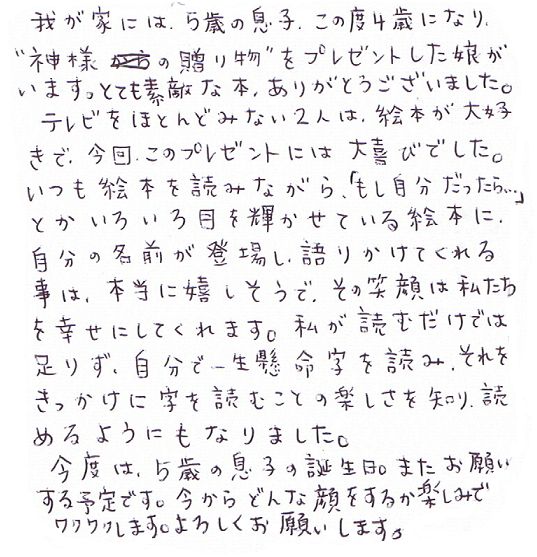 我が家には、5歳の息子、この度4歳になり、
"神様の贈り物"をプレゼントした娘が
います。とても素敵な本、ありがとうございました。
テレビをほとんどみない2人は、絵本が大好
きで、今回、このプレゼントには大喜びでした。
いつも絵本を読みながら、「もし自分だったら…」
とかいろいろ目を輝かせている絵本に、
自分の名前が登場し、語りかけてくれる
事は、本当に嬉しそうで、その笑顔は私たち
を幸せにしてくれます。私が読むだけでは
足りず、自分で一生懸命字を読み、それを
きっかけに字を読むことの楽しさを知り、読
めるようにもなりました。
今度は、5歳の息子の誕生日。またお願い
する予定です。今からどんな顔をするか楽しみで
ワクワクします。よろしくお願いします。